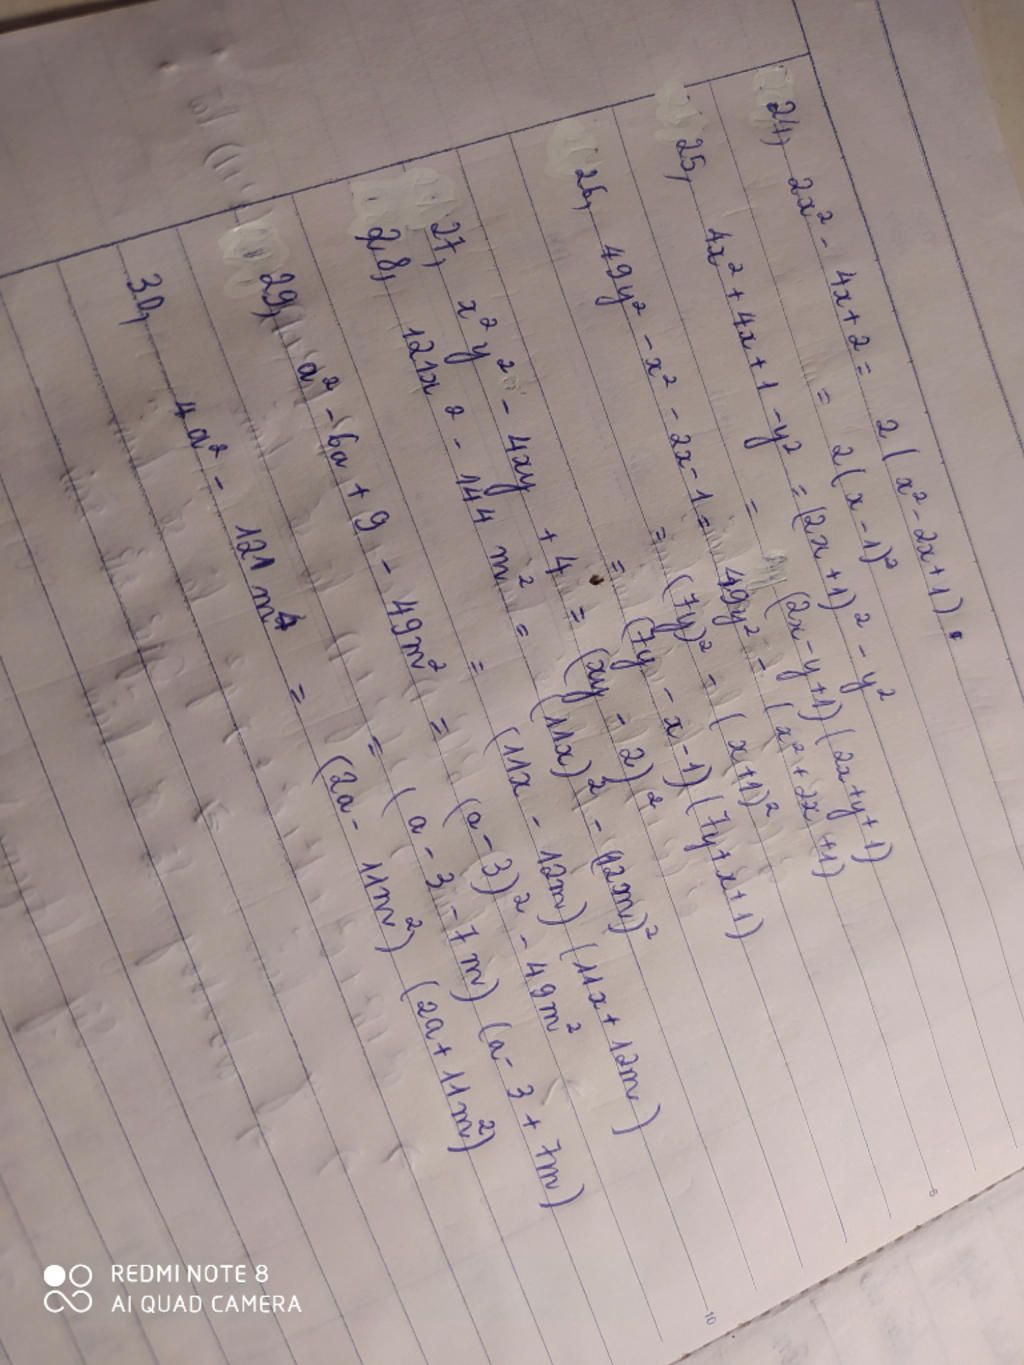 24, 2x² - 4x + 2 = 2(x² - 2x + 1).
= 2(x - 1)²
25, 4x² + 4x + 1 - y² = (2x + 1)² - y²
= (2x - y + 1)(2x + y + 1)
26, 49y² - x² - 2x - 1 = 49y² - (x² + 2x + 1)
= (7y)² - (x + 1)²
= (7y - x - 1)(7y + x + 1)
27, x²y² - 4xy + 4 = (xy - 2)²
28, 121x² - 144m² = (11x)² - (12m)²
= (11x - 12m)(11x + 12m)
29, a² - 6a + 9 - 49m² = (a - 3)² - 49m²
= (a - 3 - 7m)(a - 3 + 7m)
30, 4a² - 121m⁴ = (2a - 11m²)(2a + 11m²)
5
10
REDMI NOTE 8
AI QUAD CAMERA